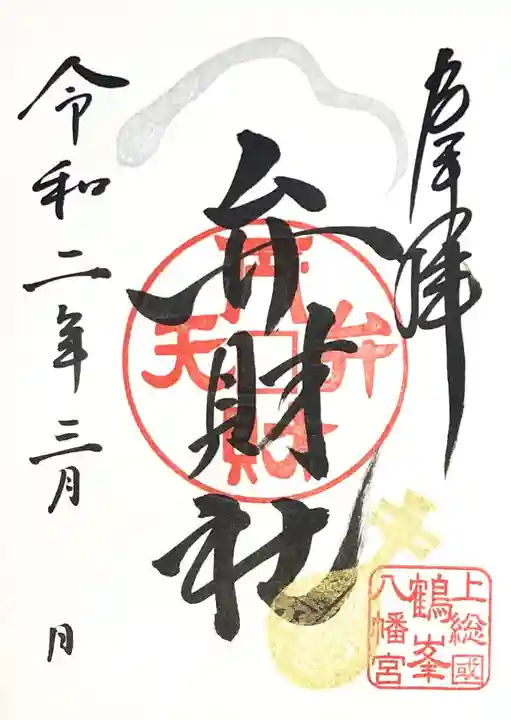 奉拝
弁財社
弁財天
上総國
鶴峯
八幡宮
令和二年三月　日